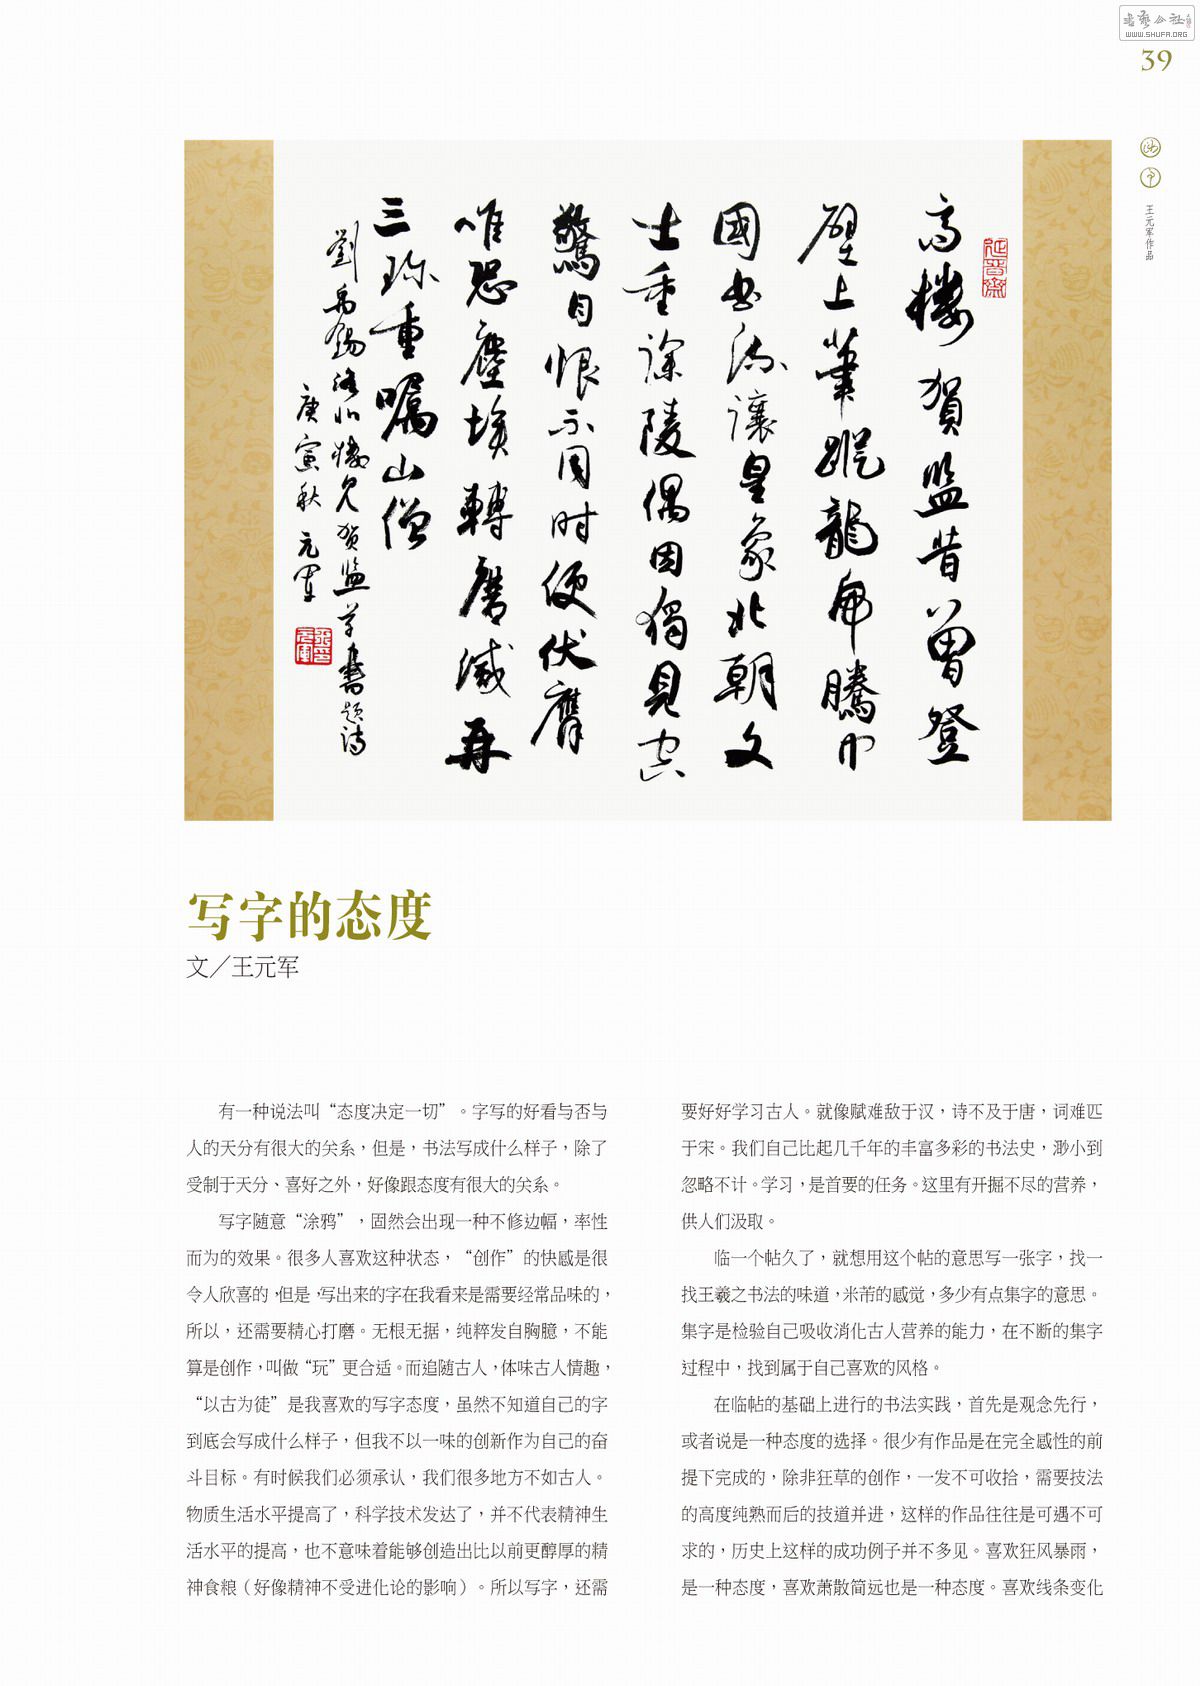 书艺公社
WWW.SHUFA.ORG
39
王元军作品
高楼賀監昔曾登
壁上筆蹤龍虎騰中
國书流讓皇象北朝文
士重徐陵偶因獨見空
驚目恨不同时便伏膺
唯恐塵埃轉磨滅再
三珎重嘱山僧
劉禹锡洛北楼见贺监草書题诗
庚寅秋元军
写字的态度
文／王元军
有一种说法叫“态度决定一切”。字写的好看与否与
人的天分有很大的关系，但是，书法写成什么样子，除了
受制于天分、喜好之外，好像跟态度有很大的关系。
写字随意“涂鸦”，固然会出现一种不修边幅，率性
而为的效果。很多人喜欢这种状态，“创作”的快感是很
令人欣喜的，但是，写出来的字在我看来是需要经常品味的，
所以，还需要精心打磨。无根无据，纯粹发自胸臆，不能
算是创作，叫做“玩”更合适。而追随古人，体味古人情趣，
“以古为徒”是我喜欢的写字态度，虽然不知道自己的字
到底会写成什么样子，但我不以一味的创新作为自己的奋
斗目标。有时候我们必须承认，我们很多地方不如古人。
物质生活水平提高了，科学技术发达了，并不代表精神生
活水平的提高，也不意味着能够创造出比以前更醇厚的精
神食粮（好像精神不受进化论的影响）。所以写字，还需
要好好学习古人。就像赋难敌于汉，诗不及于唐，词难匹
于宋。我们自己比起几千年的丰富多彩的书法史，渺小到
忽略不计。学习，是首要的任务。这里有开掘不尽的营养，
供人们汲取。
临一个帖久了，就想用这个帖的意思写一张字，找一
找王羲之书法的味道，米芾的感觉，多少有点集字的意思。
集字是检验自己吸收消化古人营养的能力，在不断的集字
过程中，找到属于自己喜欢的风格。
在临帖的基础上进行的书法实践，首先是观念先行，
或者说是一种态度的选择。很少有作品是在完全感性的前
提下完成的，除非狂草的创作，一发不可收拾，需要技法
的高度纯熟而后的技道并进，这样的作品往往是可遇不可
求的，历史上这样的成功例子并不多见。喜欢狂风暴雨，
是一种态度，喜欢萧散简远也是一种态度。喜欢线条变化